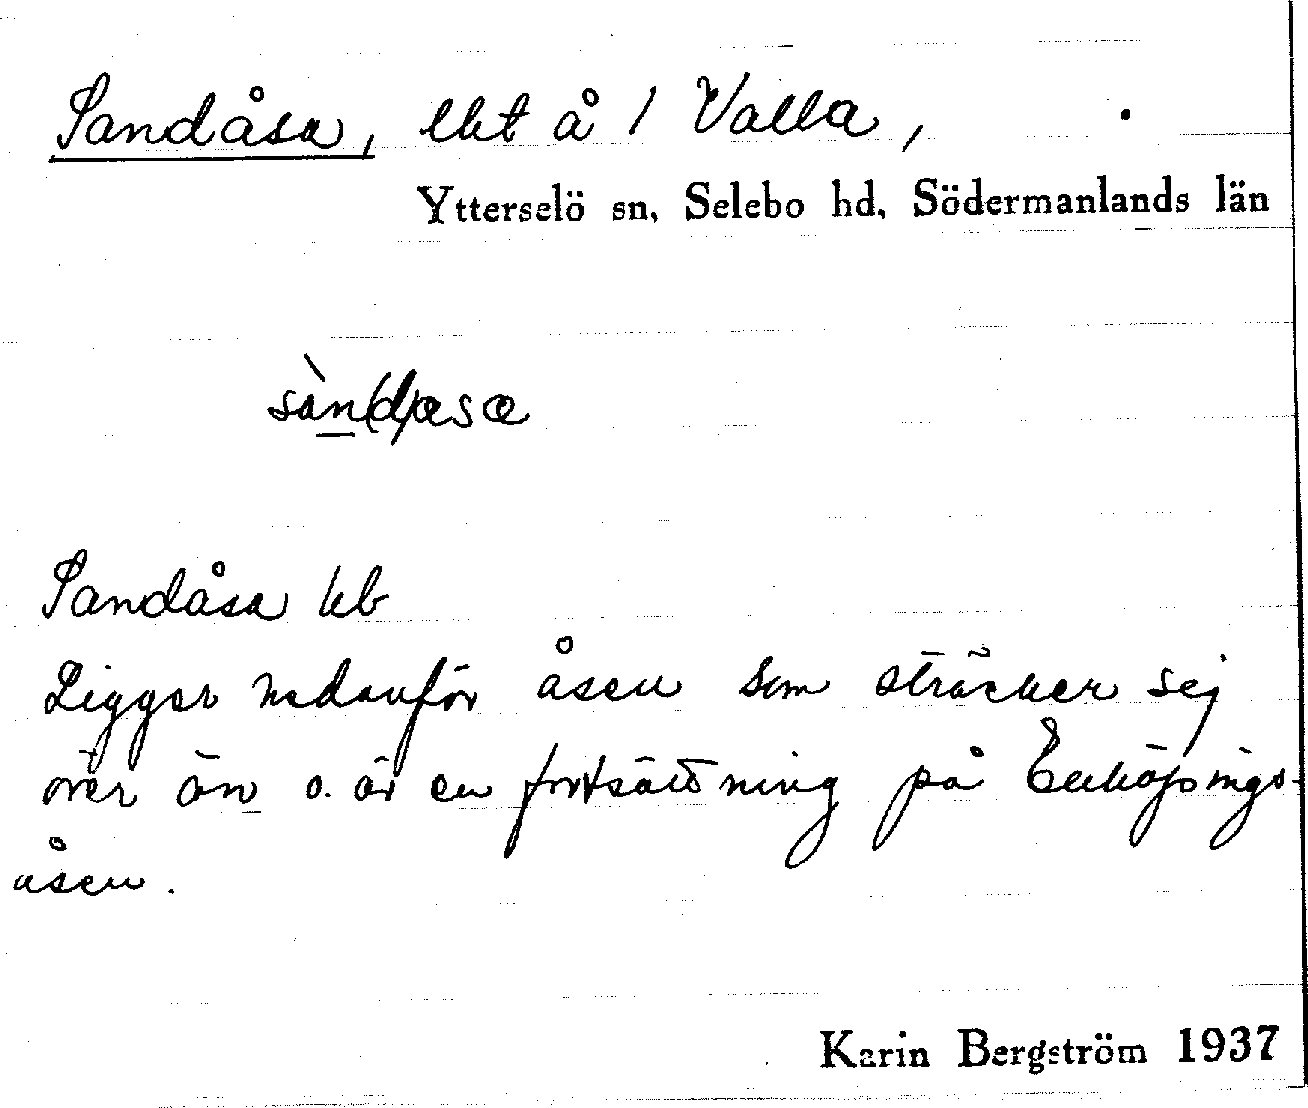 Sandåsa, lht å 1/ Valla,
Ytterselö sn, Selebo hd, Södermanlands län
sàn(d)åsa
Sandåsa kb
Ligger nedanför åsen som sträcker sej
över ön o. är en fortsättning på Enköpings-
åsen.
Karin Bergström 1937